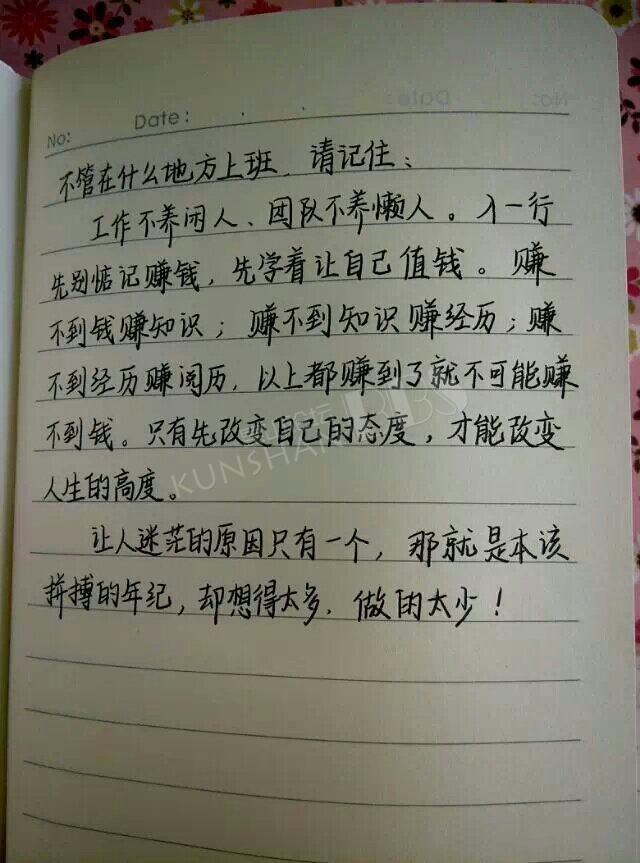 No:
Date:
不管在什么地方上班,请记住:
工作不养闲人、团队不养懒人。入一行
先别惦记赚钱,先学着让自己值钱。赚
不到钱赚知识;赚不到知识赚经历;赚
不到经历赚阅历,以上都赚到了就不可能赚
不到钱。只有先改变自己的态度,才能改变
人生的高度。
让人迷茫的原因只有一个,那就是本该
拼搏的年纪,却想得太多,做的太少!
KUNSHAN BBS